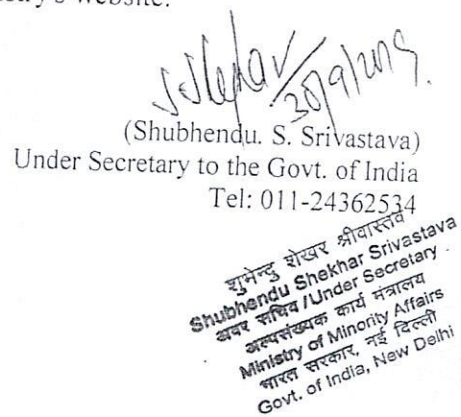 's website.
30/9/2019.
(Shubhendu. S. Srivastava)
Under Secretary to the Govt. of India
Tel: 011-24362534
शुभेन्दु शेखर श्रीवास्तव
Shubhendu Shekhar Srivastava
अवर सचिव /Under Secretary
अल्पसंख्यक कार्य मंत्रालय
Ministry of Minority Affairs
भारत सरकार, नई दिल्ली
Govt. of India, New Delhi